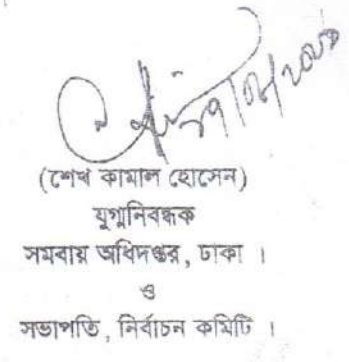 (শেখ কামাল হোসেন)
যুগ্মনিবন্ধক
সমবায় অধিদপ্তর, ঢাকা ।
ও
সভাপতি, নির্বাচন কমিটি ।